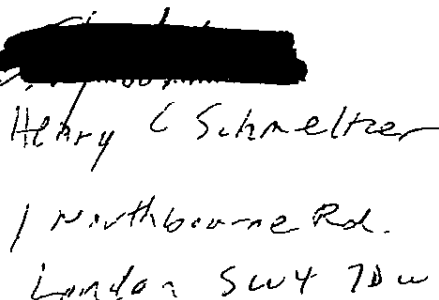 Henry C Schmeltzer
1 Northbourne Rd.
London SW4 7DW